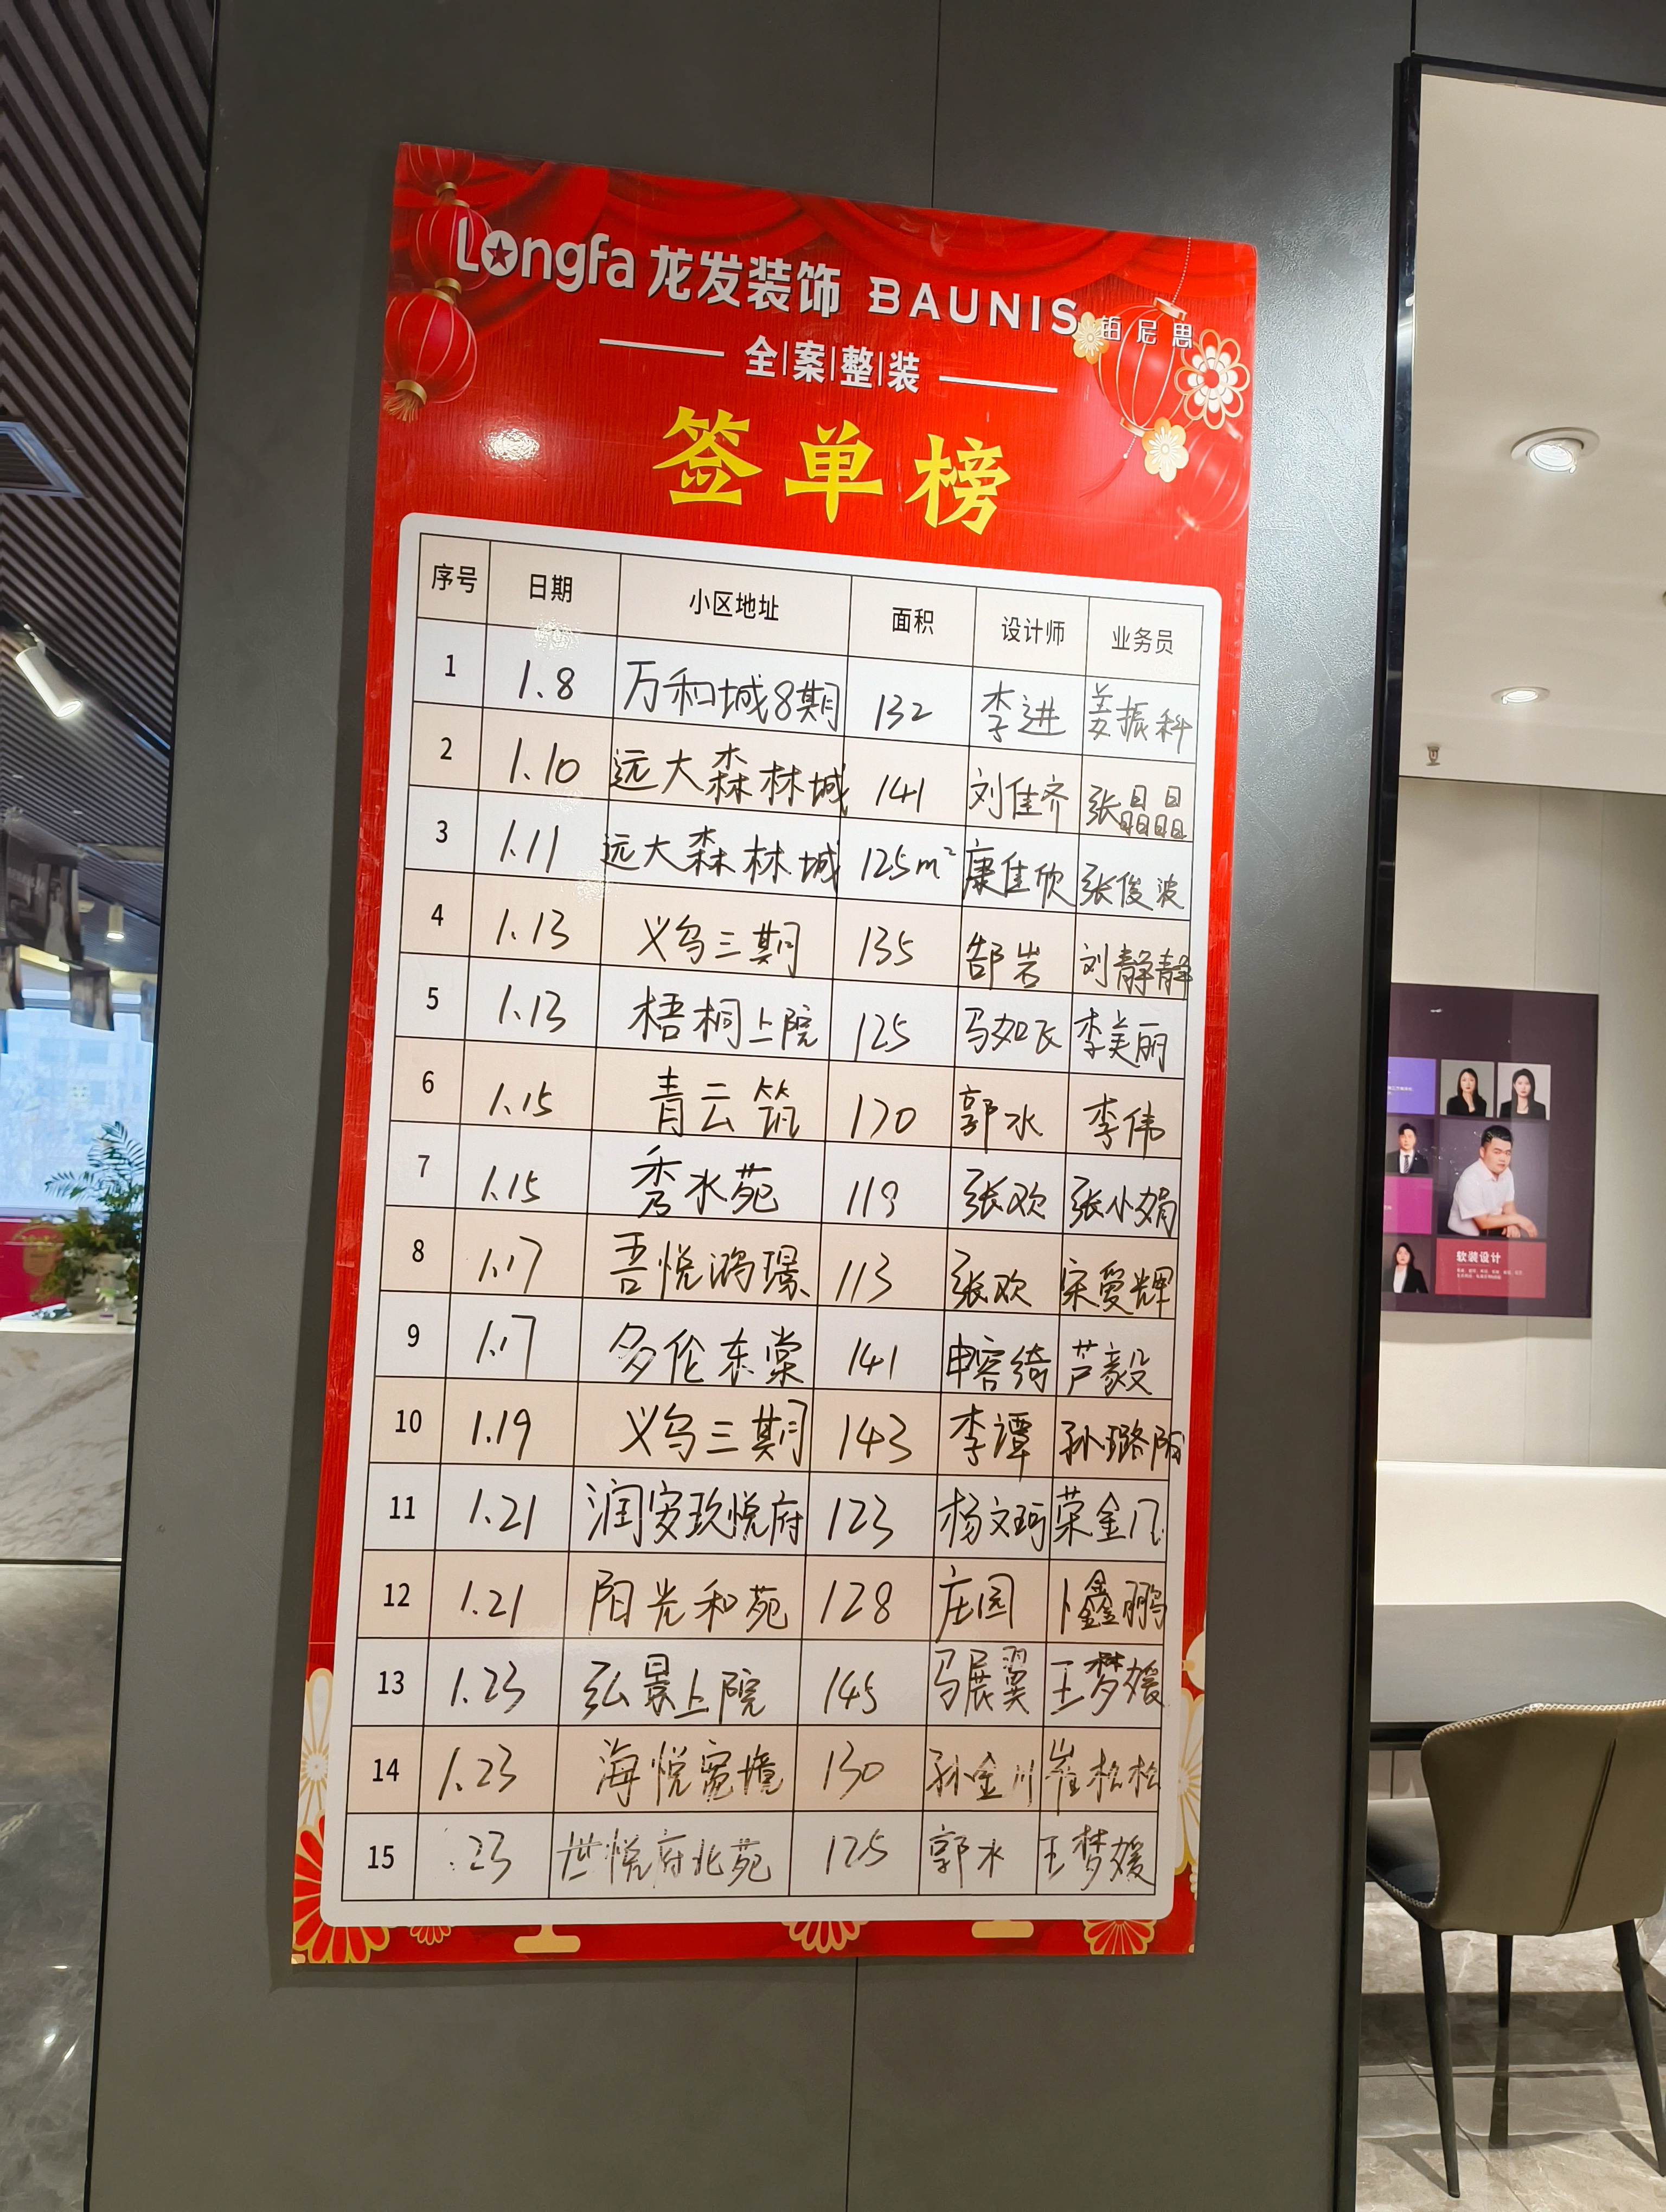 Longfa 龙发装饰 BAUNIS 铂尼思
全|案|整|装
签单榜
序号 日期 小区地址 面积 设计师 业务员
1 1.8 万和城8期 132 李进 姜振科
2 1.10 远大森林城 141 刘佳齐 张晶晶
3 1.11 远大森林城 125m² 康佳欣 张俊波
4 1.13 义乌三期 135 郜岩 刘静静
5 1.13 梧桐上院 125 马如飞 李美丽
6 1.15 青云筑 170 郭冰 李伟
7 1.15 秀水苑 119 张欢 张小娟
8 1.17 吾悦鸿璟 113 张欢 宋爱辉
9 1.17 多伦东棠 141 申容绮 芦毅
10 1.19 义乌三期 143 李谭 孙璐阳
11 1.21 润安玖悦府 123 杨文珂 荣金凡
12 1.21 阳光和苑 128 庄园 卜鑫鹏
13 1.23 弘景上院 145 马展翼 王梦媛
14 1.23 海悦宽境 130 孙金川 崔松松
15 .23 世悦府北苑 125 郭冰 王梦媛
软装设计